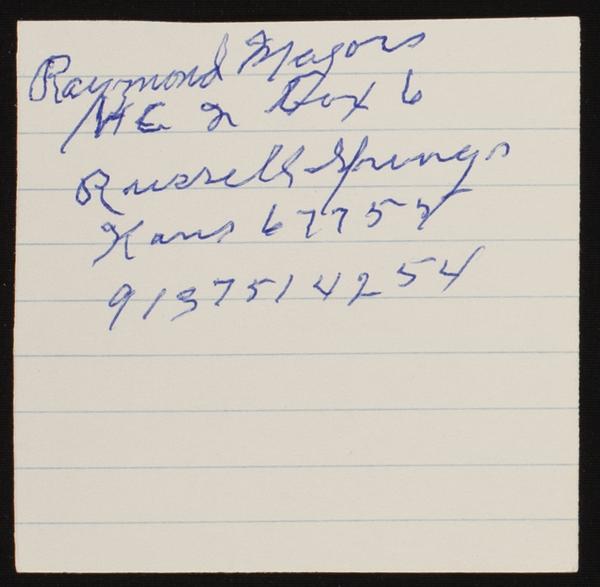 Raymond Magors
HC 2 Box 6
Russell Springs
Kans 67755
9137514254